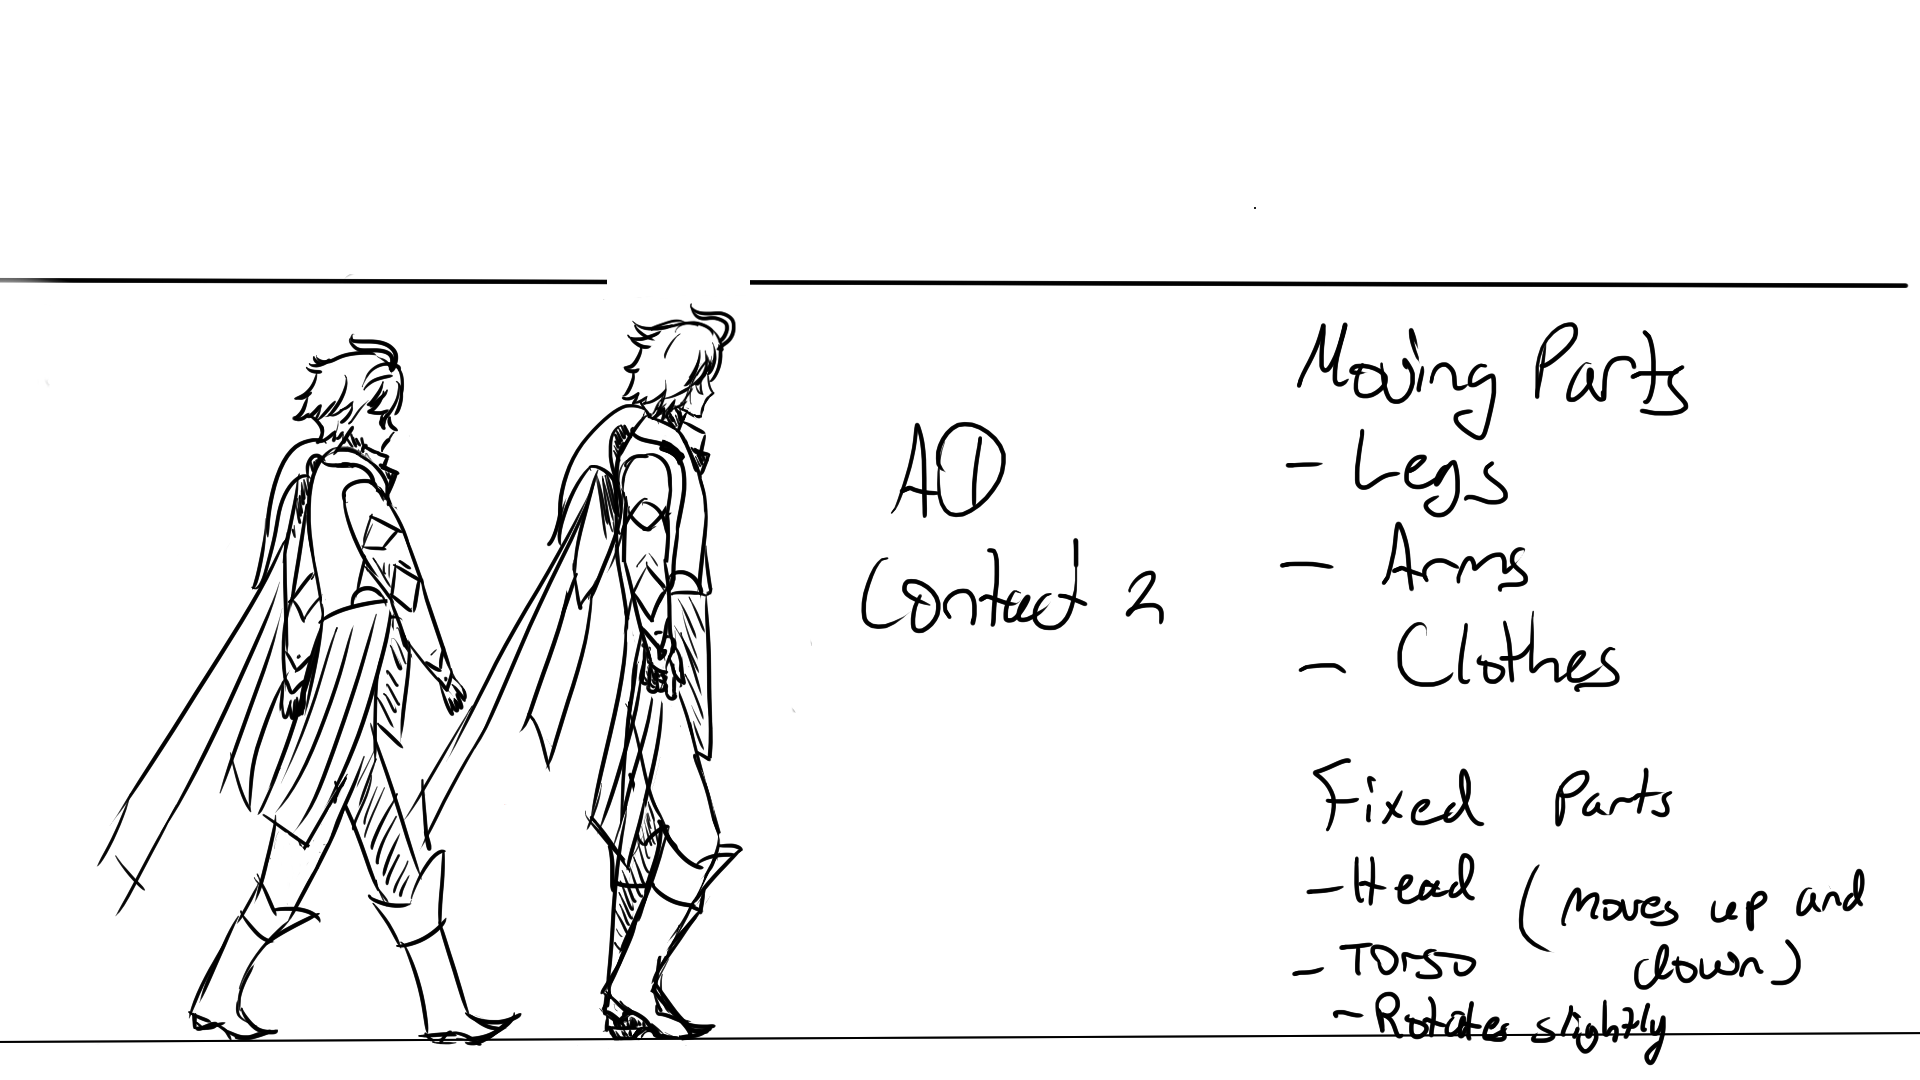 AD
Contact 2
Moving Parts
- Legs
- Arms
- Clothes
Fixed Parts
- Head (moves up and
down)
- Torso
- Rotates slightly